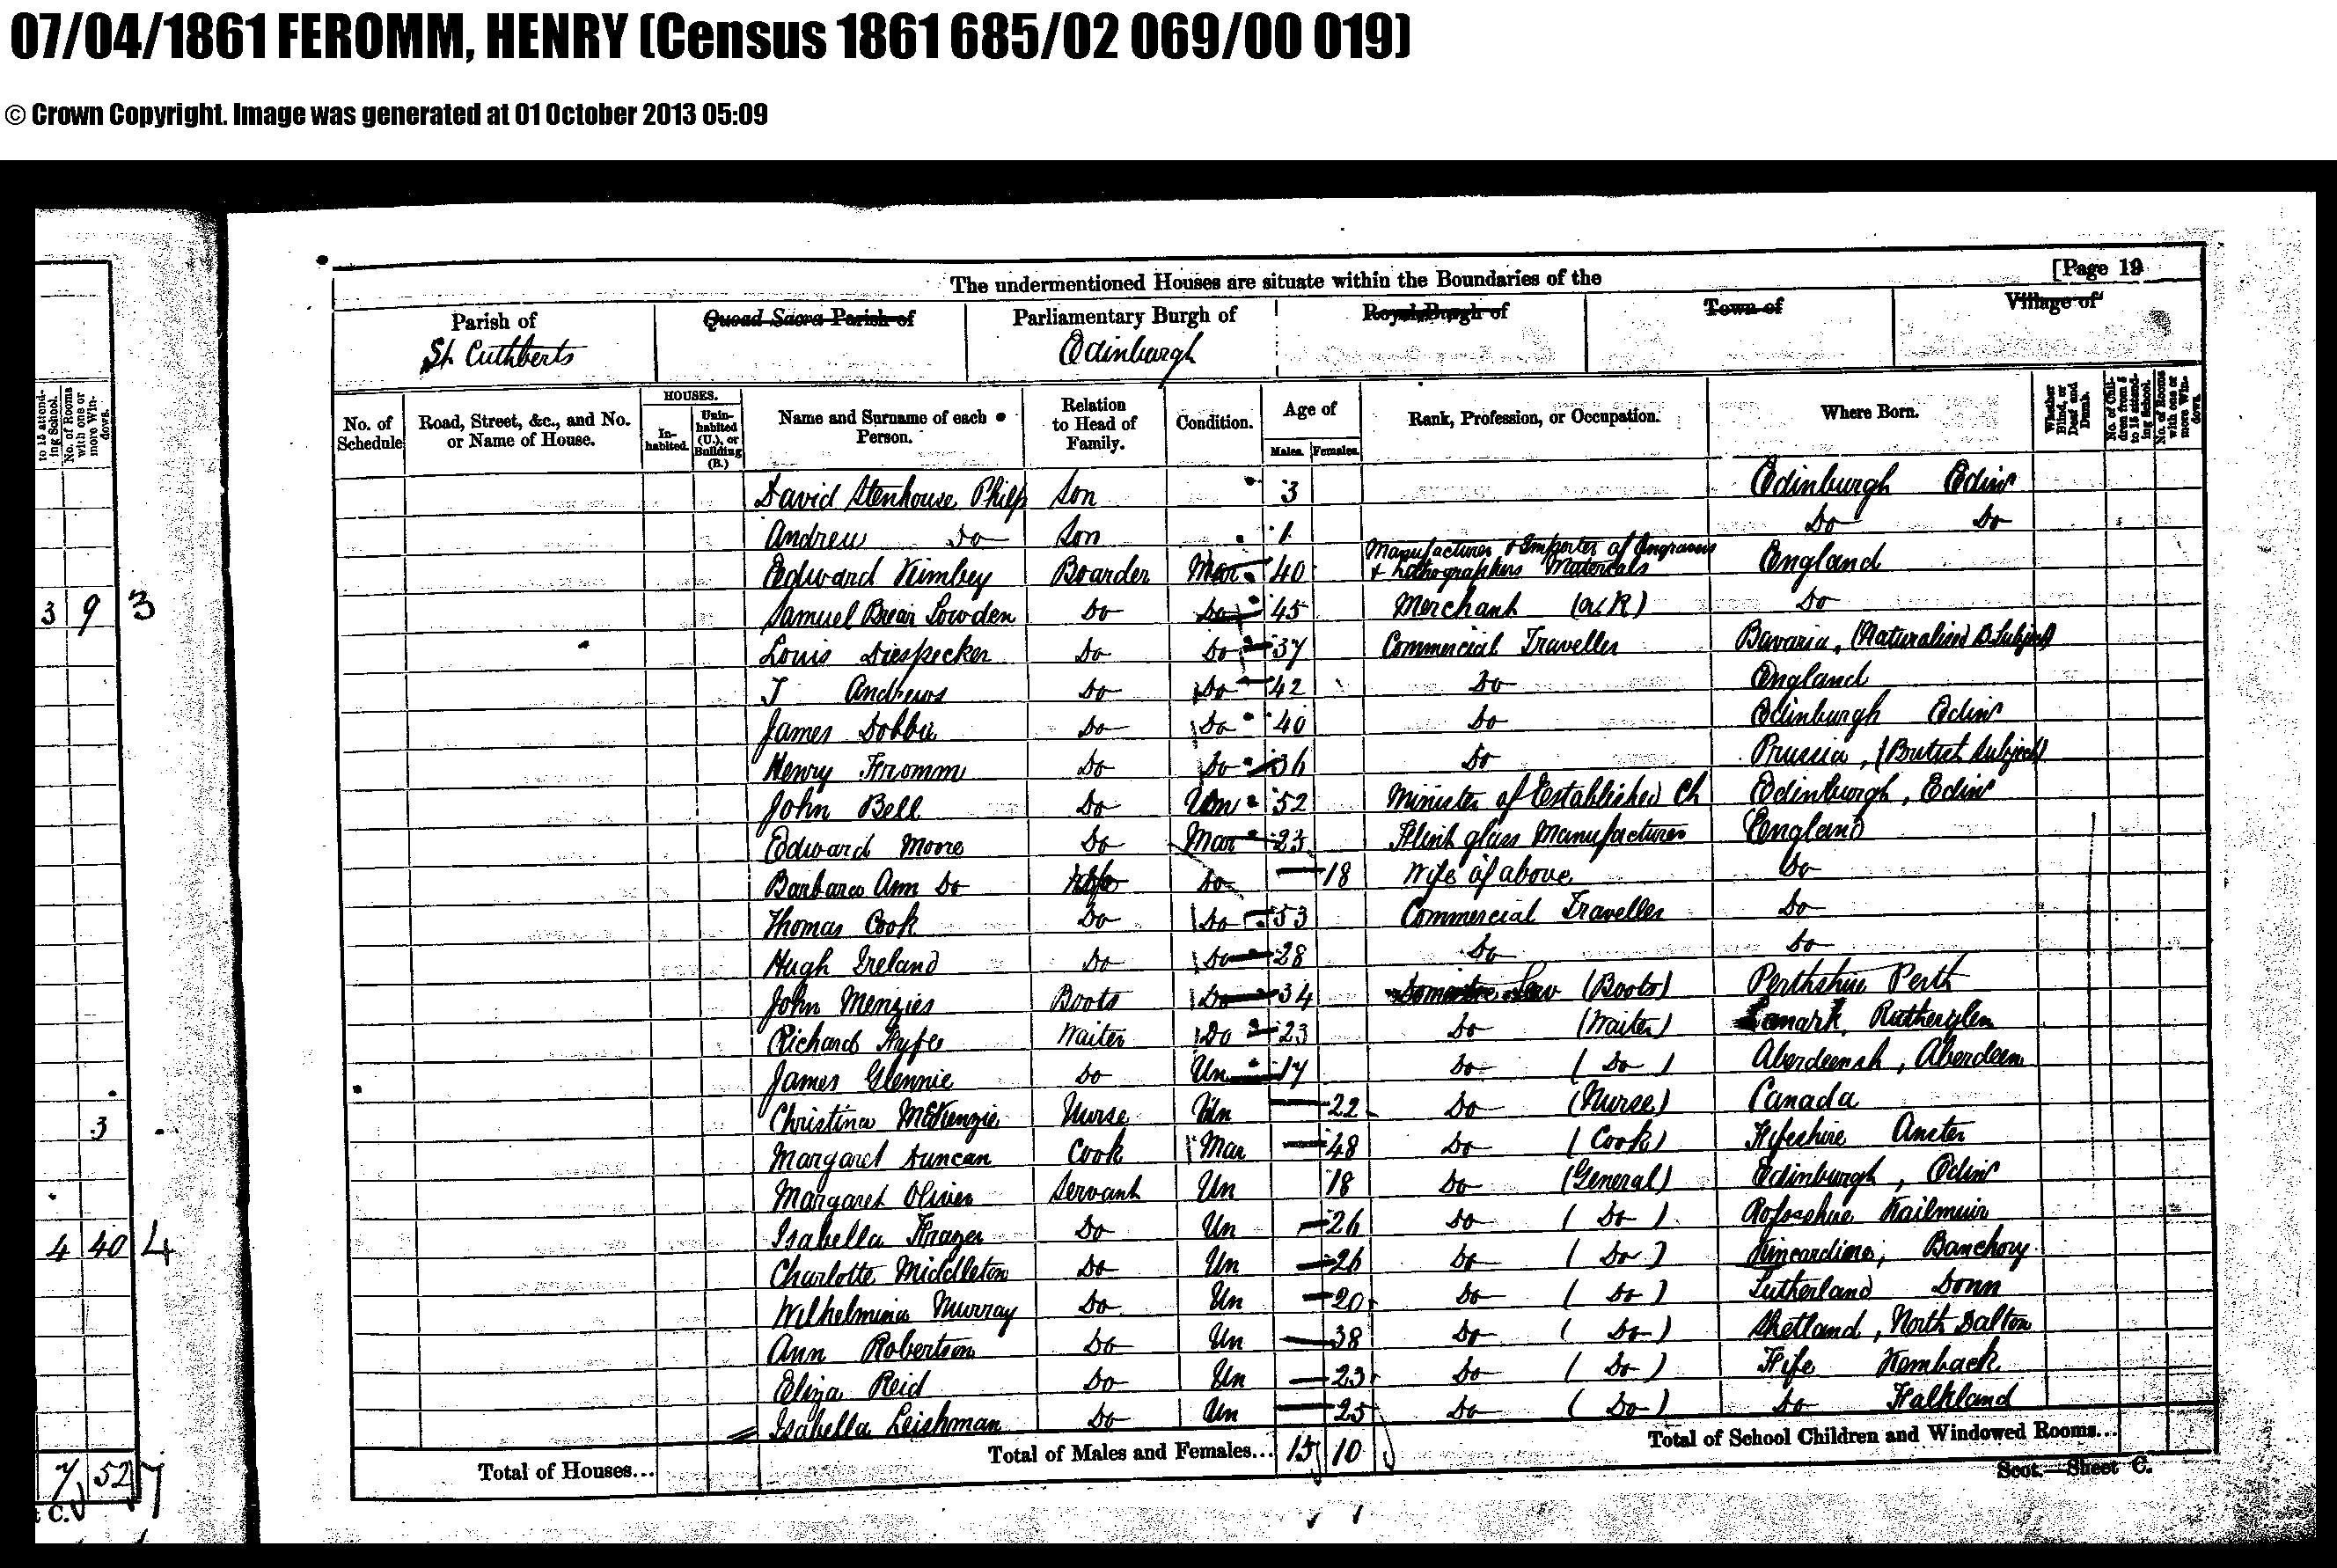 07/04/1861 FEROMM, HENRY (Census 1861 685/02 069/00 019)
© Crown Copyright. Image was generated at 01 October 2013 05:09
The undermentioned Houses are situate within the Boundaries of the [Page 19
Parish of Quoad Sacra Parish of Parliamentary Burgh of Royal Burgh of Town of Village of
St Cuthberts Edinburgh
No. of Schedule Road, Street, &c., and No. or Name of House. HOUSES. Inhabited. Uninhabited (U.), or Building (B.) Name and Surname of each Person. Relation to Head of Family. Condition. Age of Males. Females. Rank, Profession, or Occupation. Where Born. Whether Blind, or Deaf and Dumb. No. of Children from 5 to 15 attending School. No. of Rooms with one or more Windows.
to 15 attending School. No. of Rooms with one or more Windows.
David Stenhouse Philp Son 3 Edinburgh Edinr
Andrew Do Son 1 Do Do
Edward Kimbey Boarder Mar 40 Manufacturer & Importer of Engravers & Lithographers Materials England
3 9 3 Samuel Lowden Do Do 45 Merchant England Do
Louis Diespecker Do Do 37 Commercial Traveller Bavaria, (Naturalised B. Subject)
J Andrews Do Do 42 Do England
James Dobbie Do Do 40 Do Edinburgh Edinr
Henry Fromm Do Do 36 Do Prussia, (British Subject)
John Bell Do Un 52 Minister of Established Ch Edinburgh, Edinr
Edward Moore Do Mar 23 Flint glass Manufacturer England
Barbara Ann Do Wife Do 18 Wife of above Do
Thomas Cook Do Do 53 Commercial Traveller Do
Hugh Ireland Do Do 28 Do Do
John Menzies Boots Do 34 Domestic Serv (Boots) Perthshire Perth
Richard Fyfe Waiter Do 23 Do (Waiter) Lanark, Rutherglen
James Glennie Do Un 17 Do (Do) Aberdeensh, Aberdeen
3 Christina McKenzie Nurse Un 22 Do (Nurse) Canada
Margaret Duncan Cook Mar 48 Do (Cook) Fifeshire Anster
Margaret Oliver Servant Un 18 Do (General) Edinburgh, Edinr
4 40 4 Isabella Frazer Do Un 26 Do (Do)
Charlotte Middleton Do Un 26 Do (Do) Kincardine, Banchory
Wilhelmina Murray Do Un 20 Do (Do) Sutherland
Ann Robertson Do Un 38 Do (Do) Shetland, North Dalton
Eliza Reid Do Un 23 Do (Do) Fife Kemback
Isabella Leishman Do Un 25 Do (Do) Do Falkland
7 52 7 Total of Houses... Total of Males and Females... 15 10 Total of School Children and Windowed Rooms...
Scot.—Sheet C.